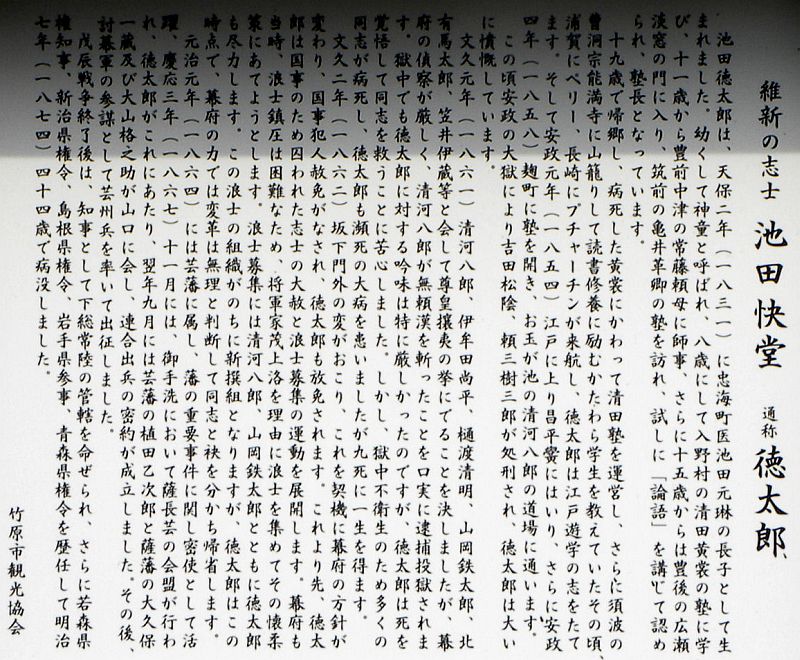 維新の志士 池田快堂 通称 徳太郎
池田徳太郎は、天保二年（一八三一）に忠海町医池田元琳の長子として生
まれました。幼くして神童と呼ばれ、八歳にして入野村の清田黄裳の塾に学
び、十一歳から豊前中津の常藤頼母に師事、さらに十五歳からは豊後の広瀬
淡窓の門に入り、筑前の亀井革卿の塾を訪れ、試しに「論語」を講じて認め
られ、塾長となっています。
十九歳で帰郷し、病死した黄裳にかわって清田塾を運営し、さらに須波の
曹洞宗能満寺に山籠りして読書修養に励むかたわら学生を教えていたその頃、
浦賀にペリー、長崎にプチャーチンが来航し、徳太郎は江戸遊学の志をたて
ます。そして安政元年（一八五四）江戸に上り昌平黌にはいり、さらに安政
四年（一八五八）麹町に塾を開き、お玉が池の清河八郎の道場に通います。
この頃安政の大獄により吉田松陰、頼三樹三郎が処刑され、徳太郎は大い
に憤慨しています。
文久元年（一八六一）清河八郎、伊牟田尚平、樋渡清明、山岡鉄太郎、北
有馬太郎、笠井伊蔵等と会して尊皇攘夷の挙にでることを決しましたが、幕
府の偵察が厳しく、清河八郎が無頼漢を斬ったことを口実に逮捕投獄されま
す。獄中でも徳太郎に対する吟味は特に厳しかったのですが、徳太郎は死を
覚悟して同志を救うことに苦心しました。しかし、獄中不衛生のため多くの
同志が病死し、徳太郎も瀕死の大病を患いましたが九死に一生を得ます。
文久二年（一八六二）坂下門外の変がおこり、これを契機に幕府の方針が
変わり、国事犯人赦免がなされ、徳太郎も放免されます。これより先、徳太
郎は国事のため囚われた志士の大赦と浪士募集の運動を展開します。幕府も
当時、浪士鎮圧は困難なため、将軍家茂上洛を理由に浪士を集めてその懐柔
策にあてようとします。浪士募集には清河八郎、山岡鉄太郎とともに徳太郎
も尽力します。この浪士の組織がのちに新撰組となりますが、徳太郎はこの
時点で、幕府の力では変革は無理と判断して同志と袂を分かち帰省します。
元治元年（一八六四）には芸藩に属し、藩の重要事件に関し密使として活
躍、慶応三年（一八六七）十一月には、御手洗において薩長芸の会盟が行わ
れ、徳太郎がこれにあたり、翌年九月には芸藩の植田乙次郎と薩藩の大久保
一蔵及び大山格之助が山口に会し、連合出兵の密約が成立しました。その後、
討幕軍の参謀として芸州兵を率いて出征しました。
戊辰戦争終了後は、知事として下総常陸の管轄を命ぜられ、さらに若森県
権知事、新治県権令、島根県権令、岩手県参事、青森県権令を歴任して明治
七年（一八七四）四十四歳で病没しました。
竹原市観光協会